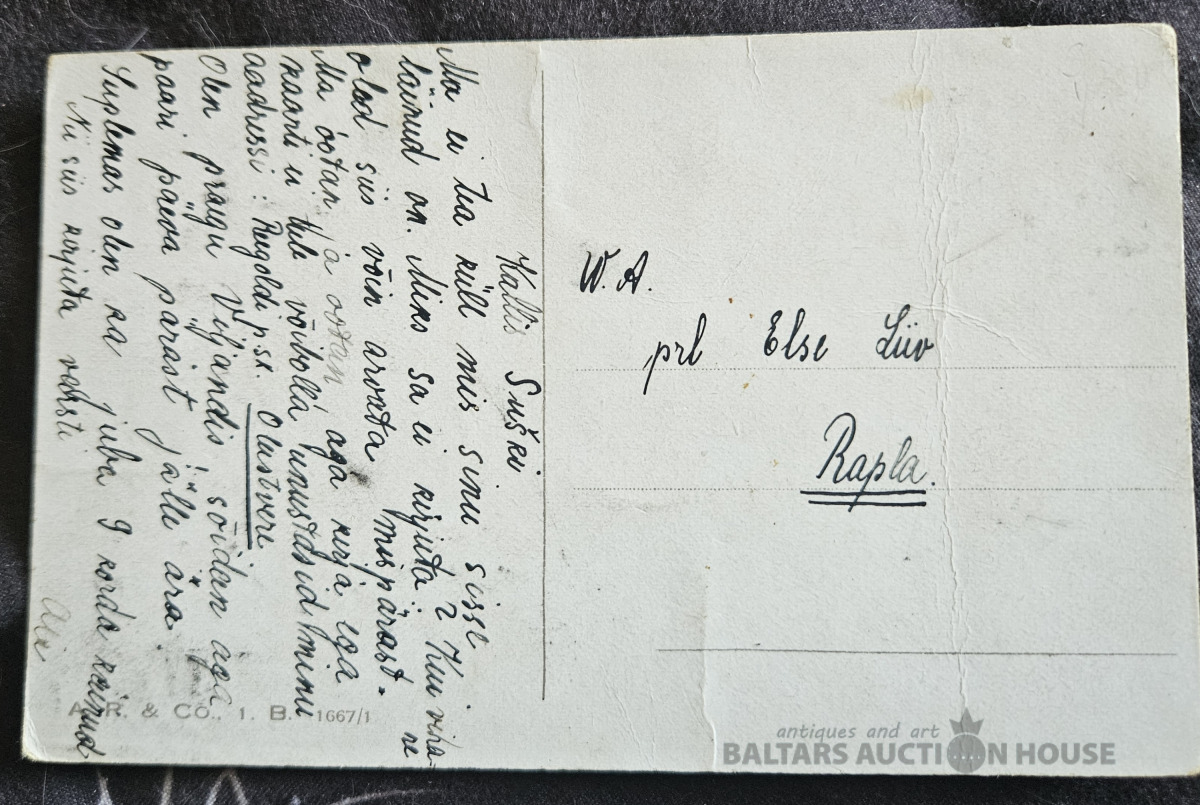 Kallis Suškei
Ma ei tea küll mis sinu sisse
läinud on. Miks sa ei kirjuta? Kui viha-
ne
olad siis võin arvata mispärast.
Ma ootan ja ootan aga kirja ega
kaarti ei tule võibolla unustasid minu
aadressi: Reegoldi psk. Olustvere
Olen praegu Viljandis sõidan aga
paari päeva pärast jälle ära.
Suplemas olen ka juba 9 korda käinud
Nii siis kirjuta varsti
W. A.
prl Else Liiv
Rapla.
A. R. & CO., 1. B. 1667/1
antiques and art
BALTARS AUCTION HOUSE